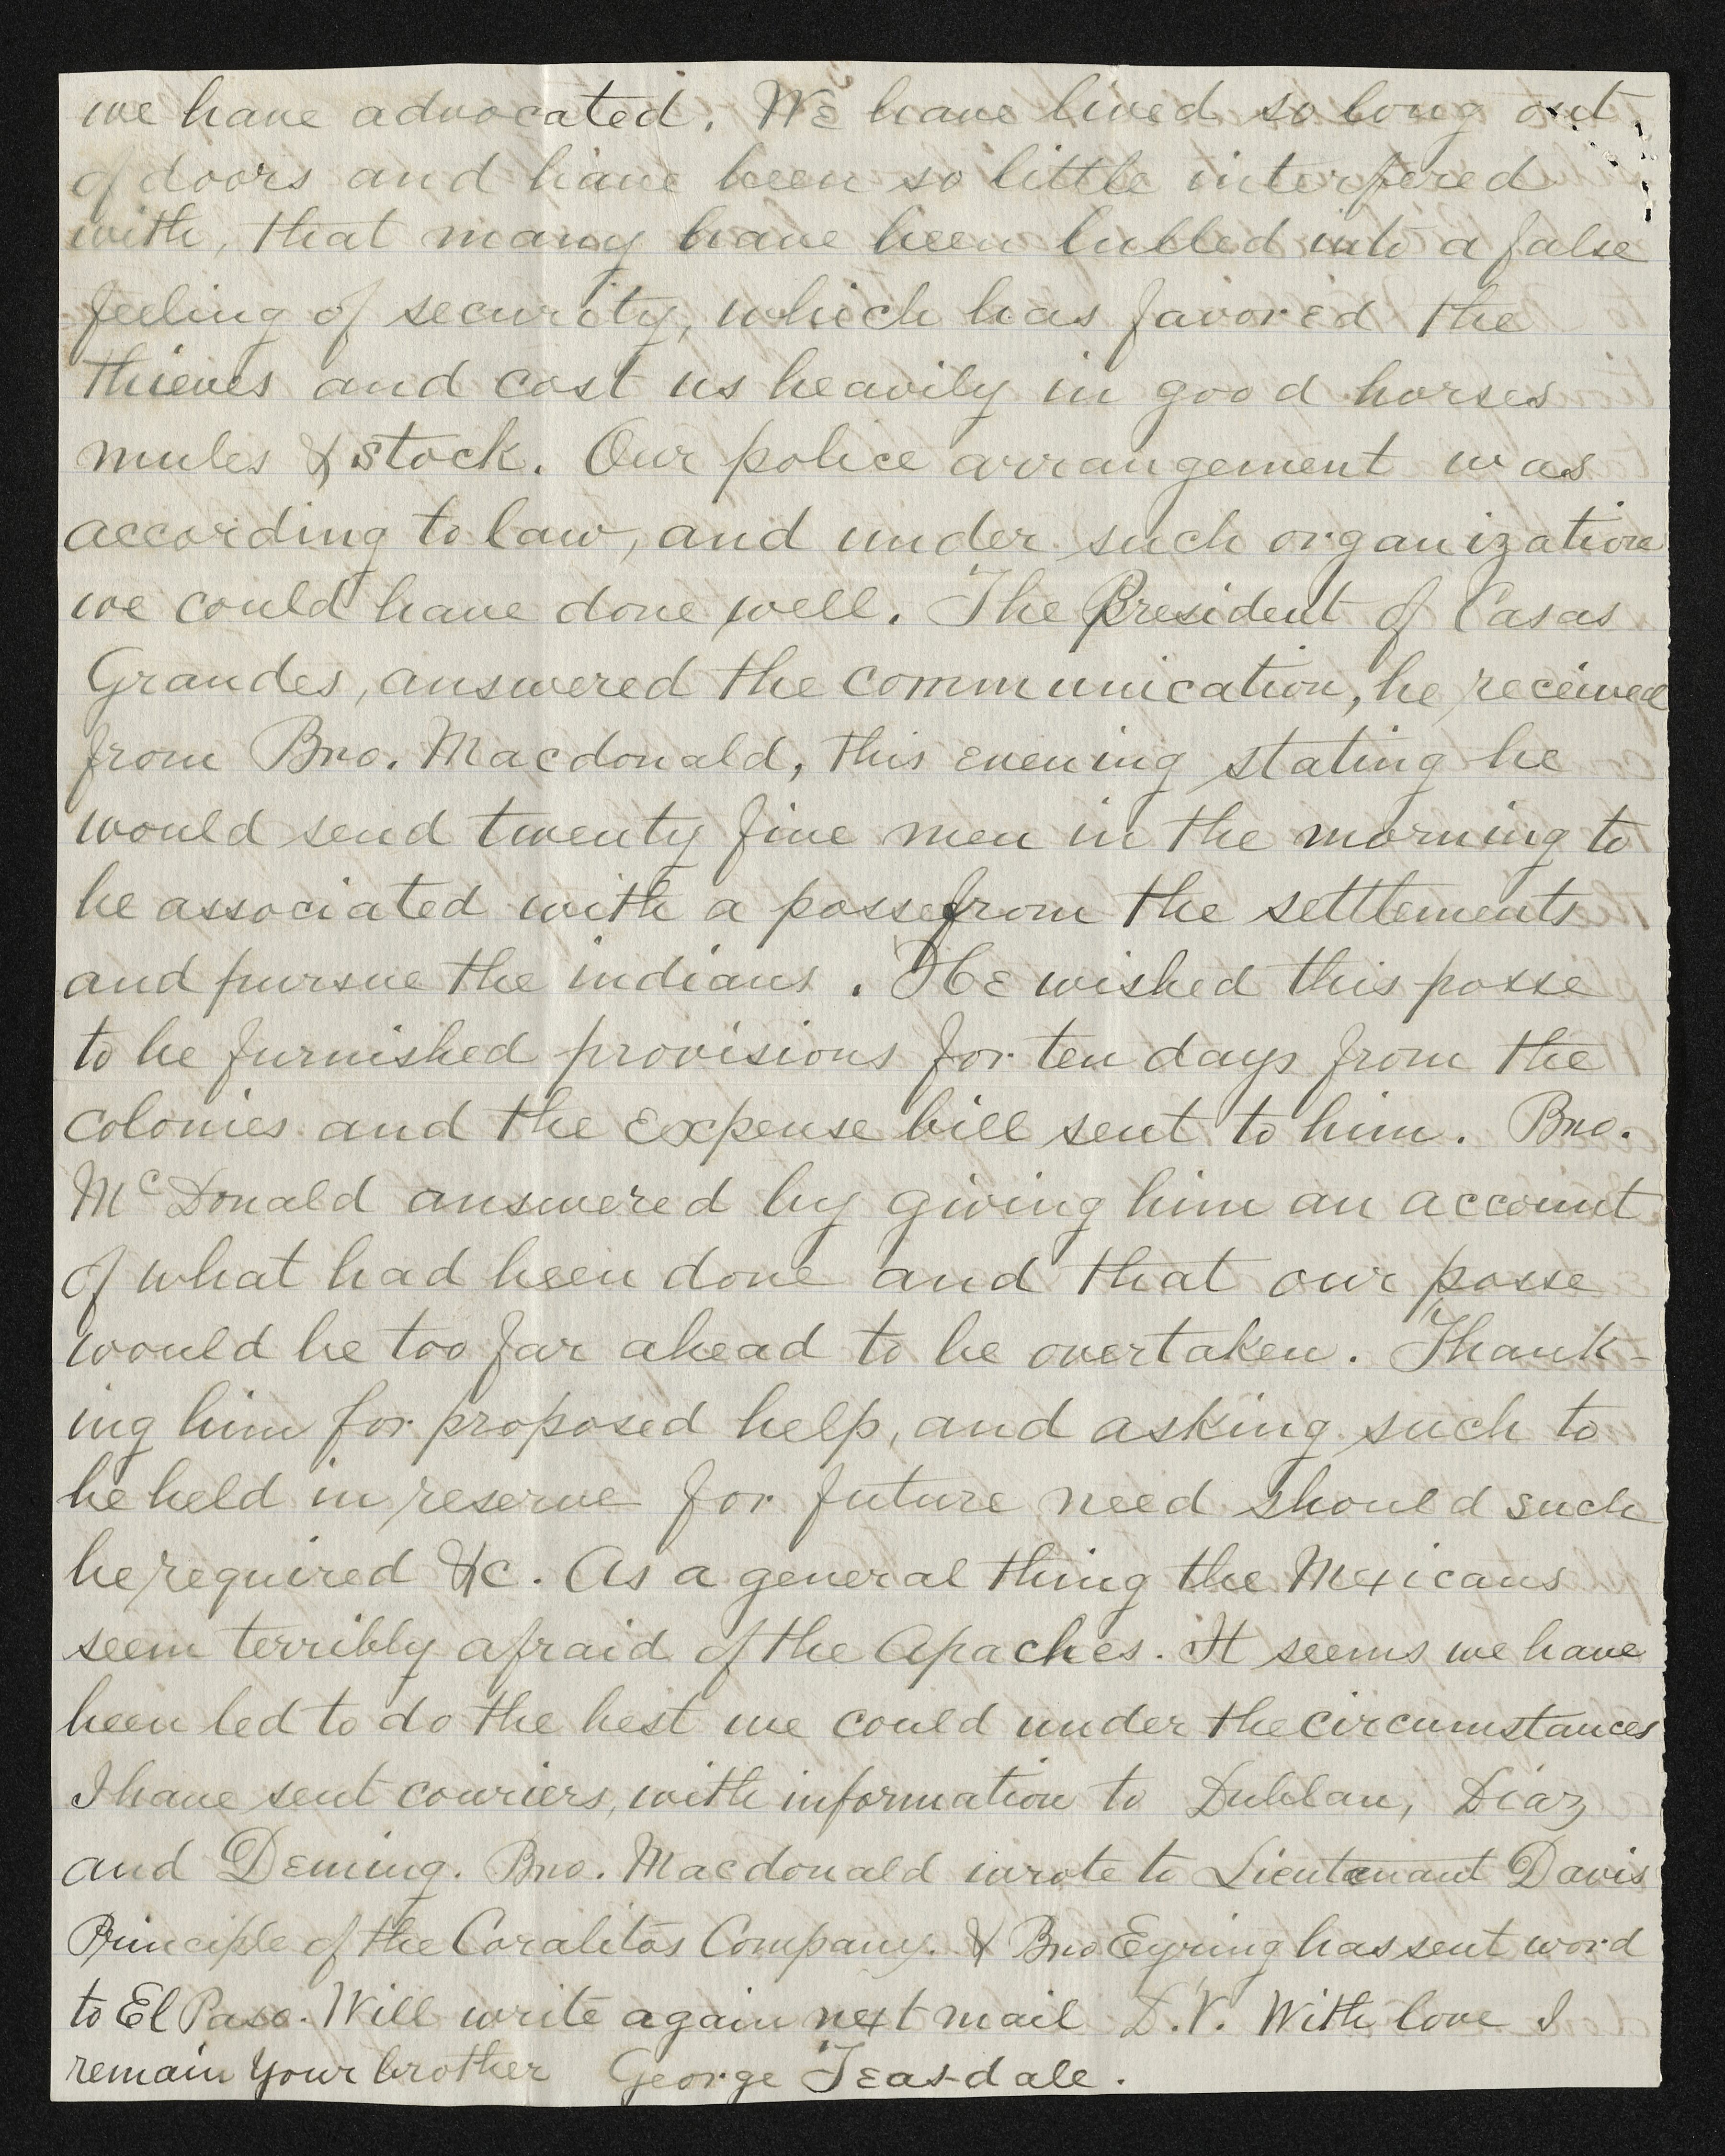 we have advocated. We have lived so long out
of doors and have been so little interfered
with, that many have been lulled into a false
feeling of security, which has favored the
thieves and cost us heavily in good horses
mules & stock. Our police arrangement was
according to law, and under such organization
we could have done well. The President of Casas
Grandes, answered the communication, he received
from Bro. Macdonald, this evening stating he
would send twenty five men in the morning to
be associated with a posse from the settlements
and pursue the indians. He wished this posse
to be furnished provisions for ten days from the
colonies and the expense bill sent to him. Bro.
McDonald answered by giving him an account
of what had been done and that our posse
would be too far ahead to be overtaken. Thank-
ing him for proposed help, and asking such to
be held in reserve for future need should such
be required &c. As a general thing the Mexicans
seem terribly afraid of the Apaches. It seems we have
been led to do the best we could under the circumstances
I have sent couriers, with information to Dublan, Diaz,
and Deming. Bro. Macdonald wrote to Lieutenant Davis
Principle of the Coralitos Company. & Bro Eyring has sent word
to El Paso. Will write again next mail D.V. With love I
remain your brother George Teasdale.